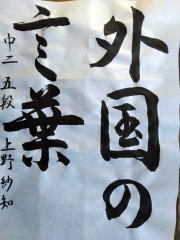 外国の
言葉
中二 五段 上野紗知